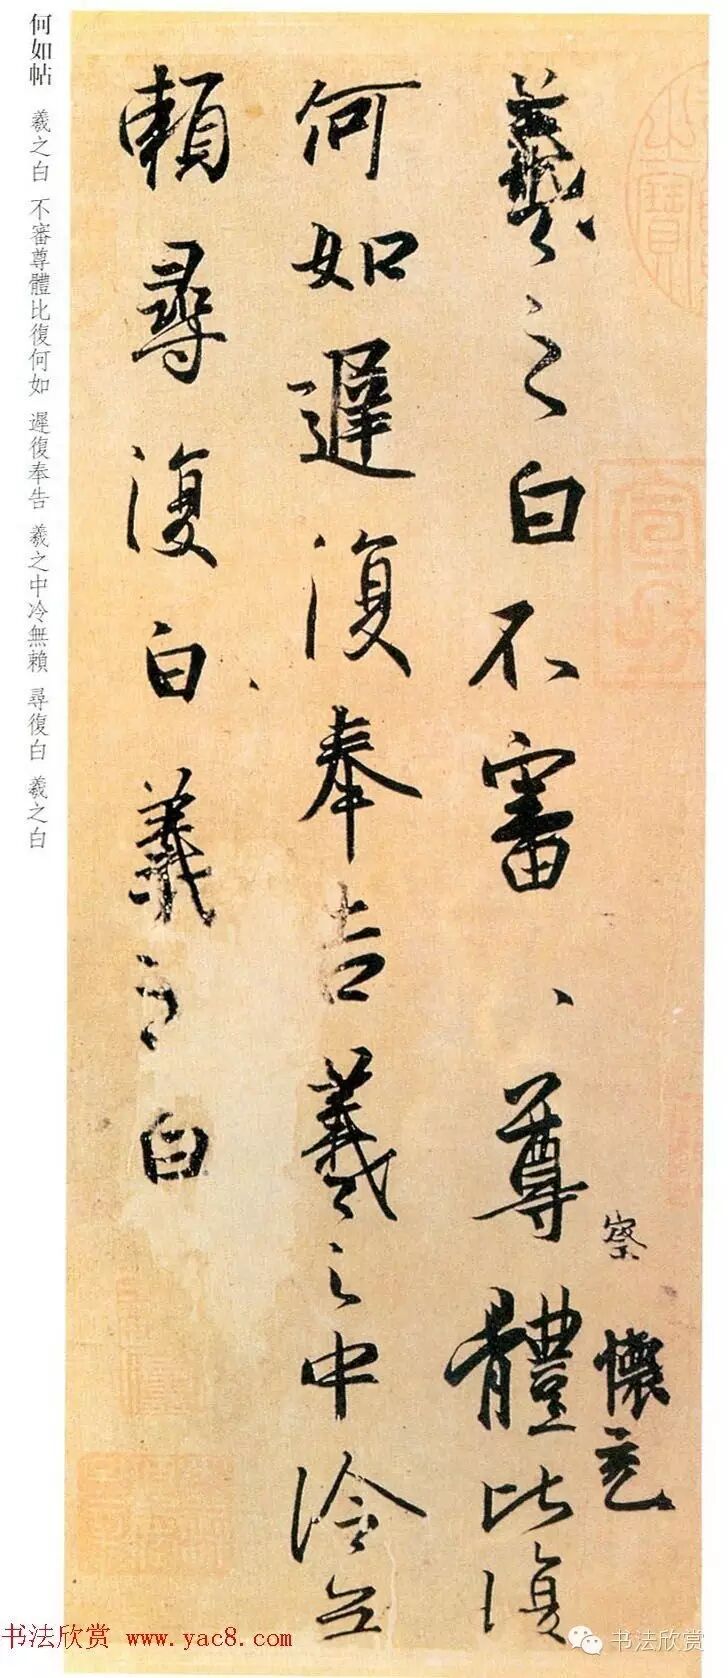 羲之白不審、尊體比復
何如遲復奉告羲之中冷無
賴尋復白羲之白
察
懷充
何如帖 羲之白 不審尊體比復何如 遲復奉告 羲之中冷無賴 尋復白 羲之白
书法欣赏 www.yac8.com
书法欣赏